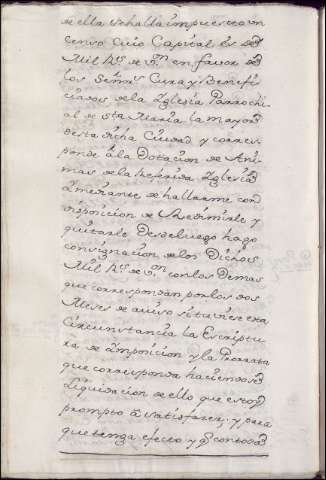 de ella se halla impuesto un
censo cuio Capital es de
Mil Rs. de Vn. en favor de
los Señres Cura y Benefi
ciados de la Yglesia Parrochi
al de Sta. Maria la mayor
desta dcha Ciudad y corres
ponde â la Dotacion de Ani
mas de la Referida Yglesia
â mediante de hallarme con
disposicion de Redimirle y
quitarle Desde luego hago
consignacion de los Dichos
Mil Rs. de Vn. con los Demas
que correspondan por los dos
Meses de aviso si tuviese exa
circunstancia la Escriptu
ra de ymposicion y la Prorrata
que corresponda haciendose
Liquidacion de ello que estoy
prompto â satisfazer; y para
que tenga efecto y qe con toda